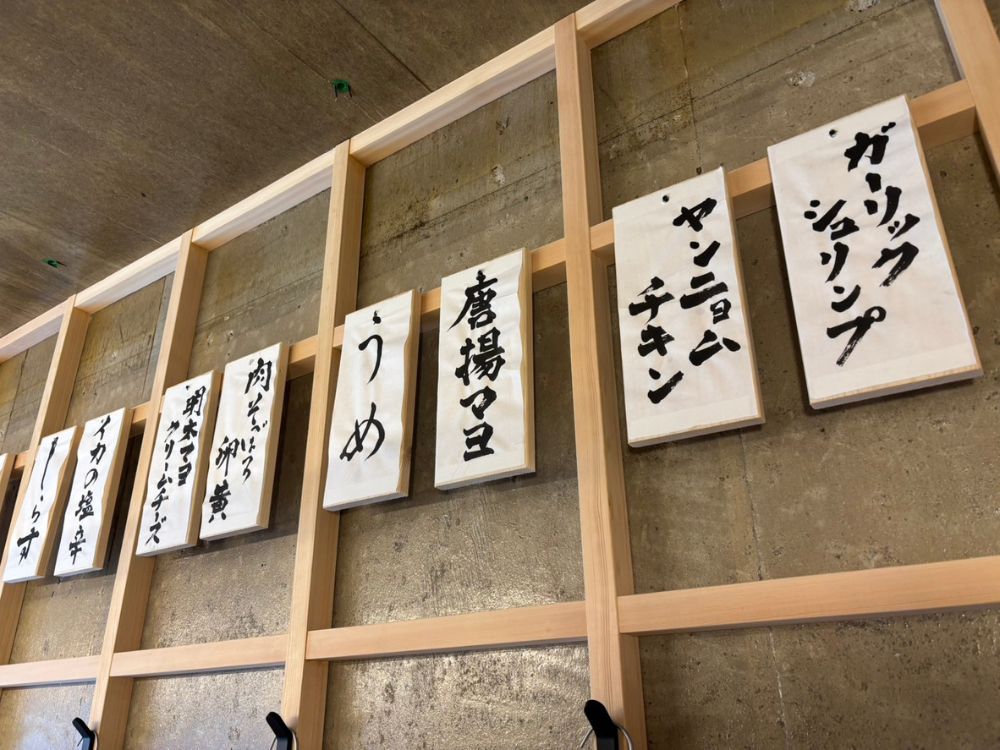 ガーリック
シュリンプ
ヤンニョム
チキン
唐揚マヨ
うめ
肉そぼろ
卵黄
明太マヨ
クリームチーズ
イカの塩辛
しらす